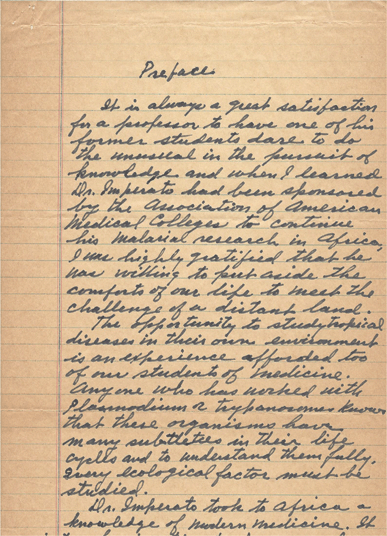 Preface
It is always a great satisfaction
for a professor to have one of his
former students dare to do
the unusual in the pursuit of
knowledge and when I learned
Dr. Imperato had been sponsored
by the Association of American
Medical Colleges to continue
his malarial research in Africa,
I was highly gratified that he
was willing to put aside the
comforts of our life to meet the
challenge of a distant land.
The opportunity to study tropical
diseases in their own environment
is an experience afforded too
of our students of medicine.
Anyone who has worked with
Plasmodium & trypanosomes knows
that these organisms have
many subtleties in their life
cycles and to understand them fully,
every ecological factor must be
studied.
Dr. Imperato took to Africa a
knowledge of modern medicine. It